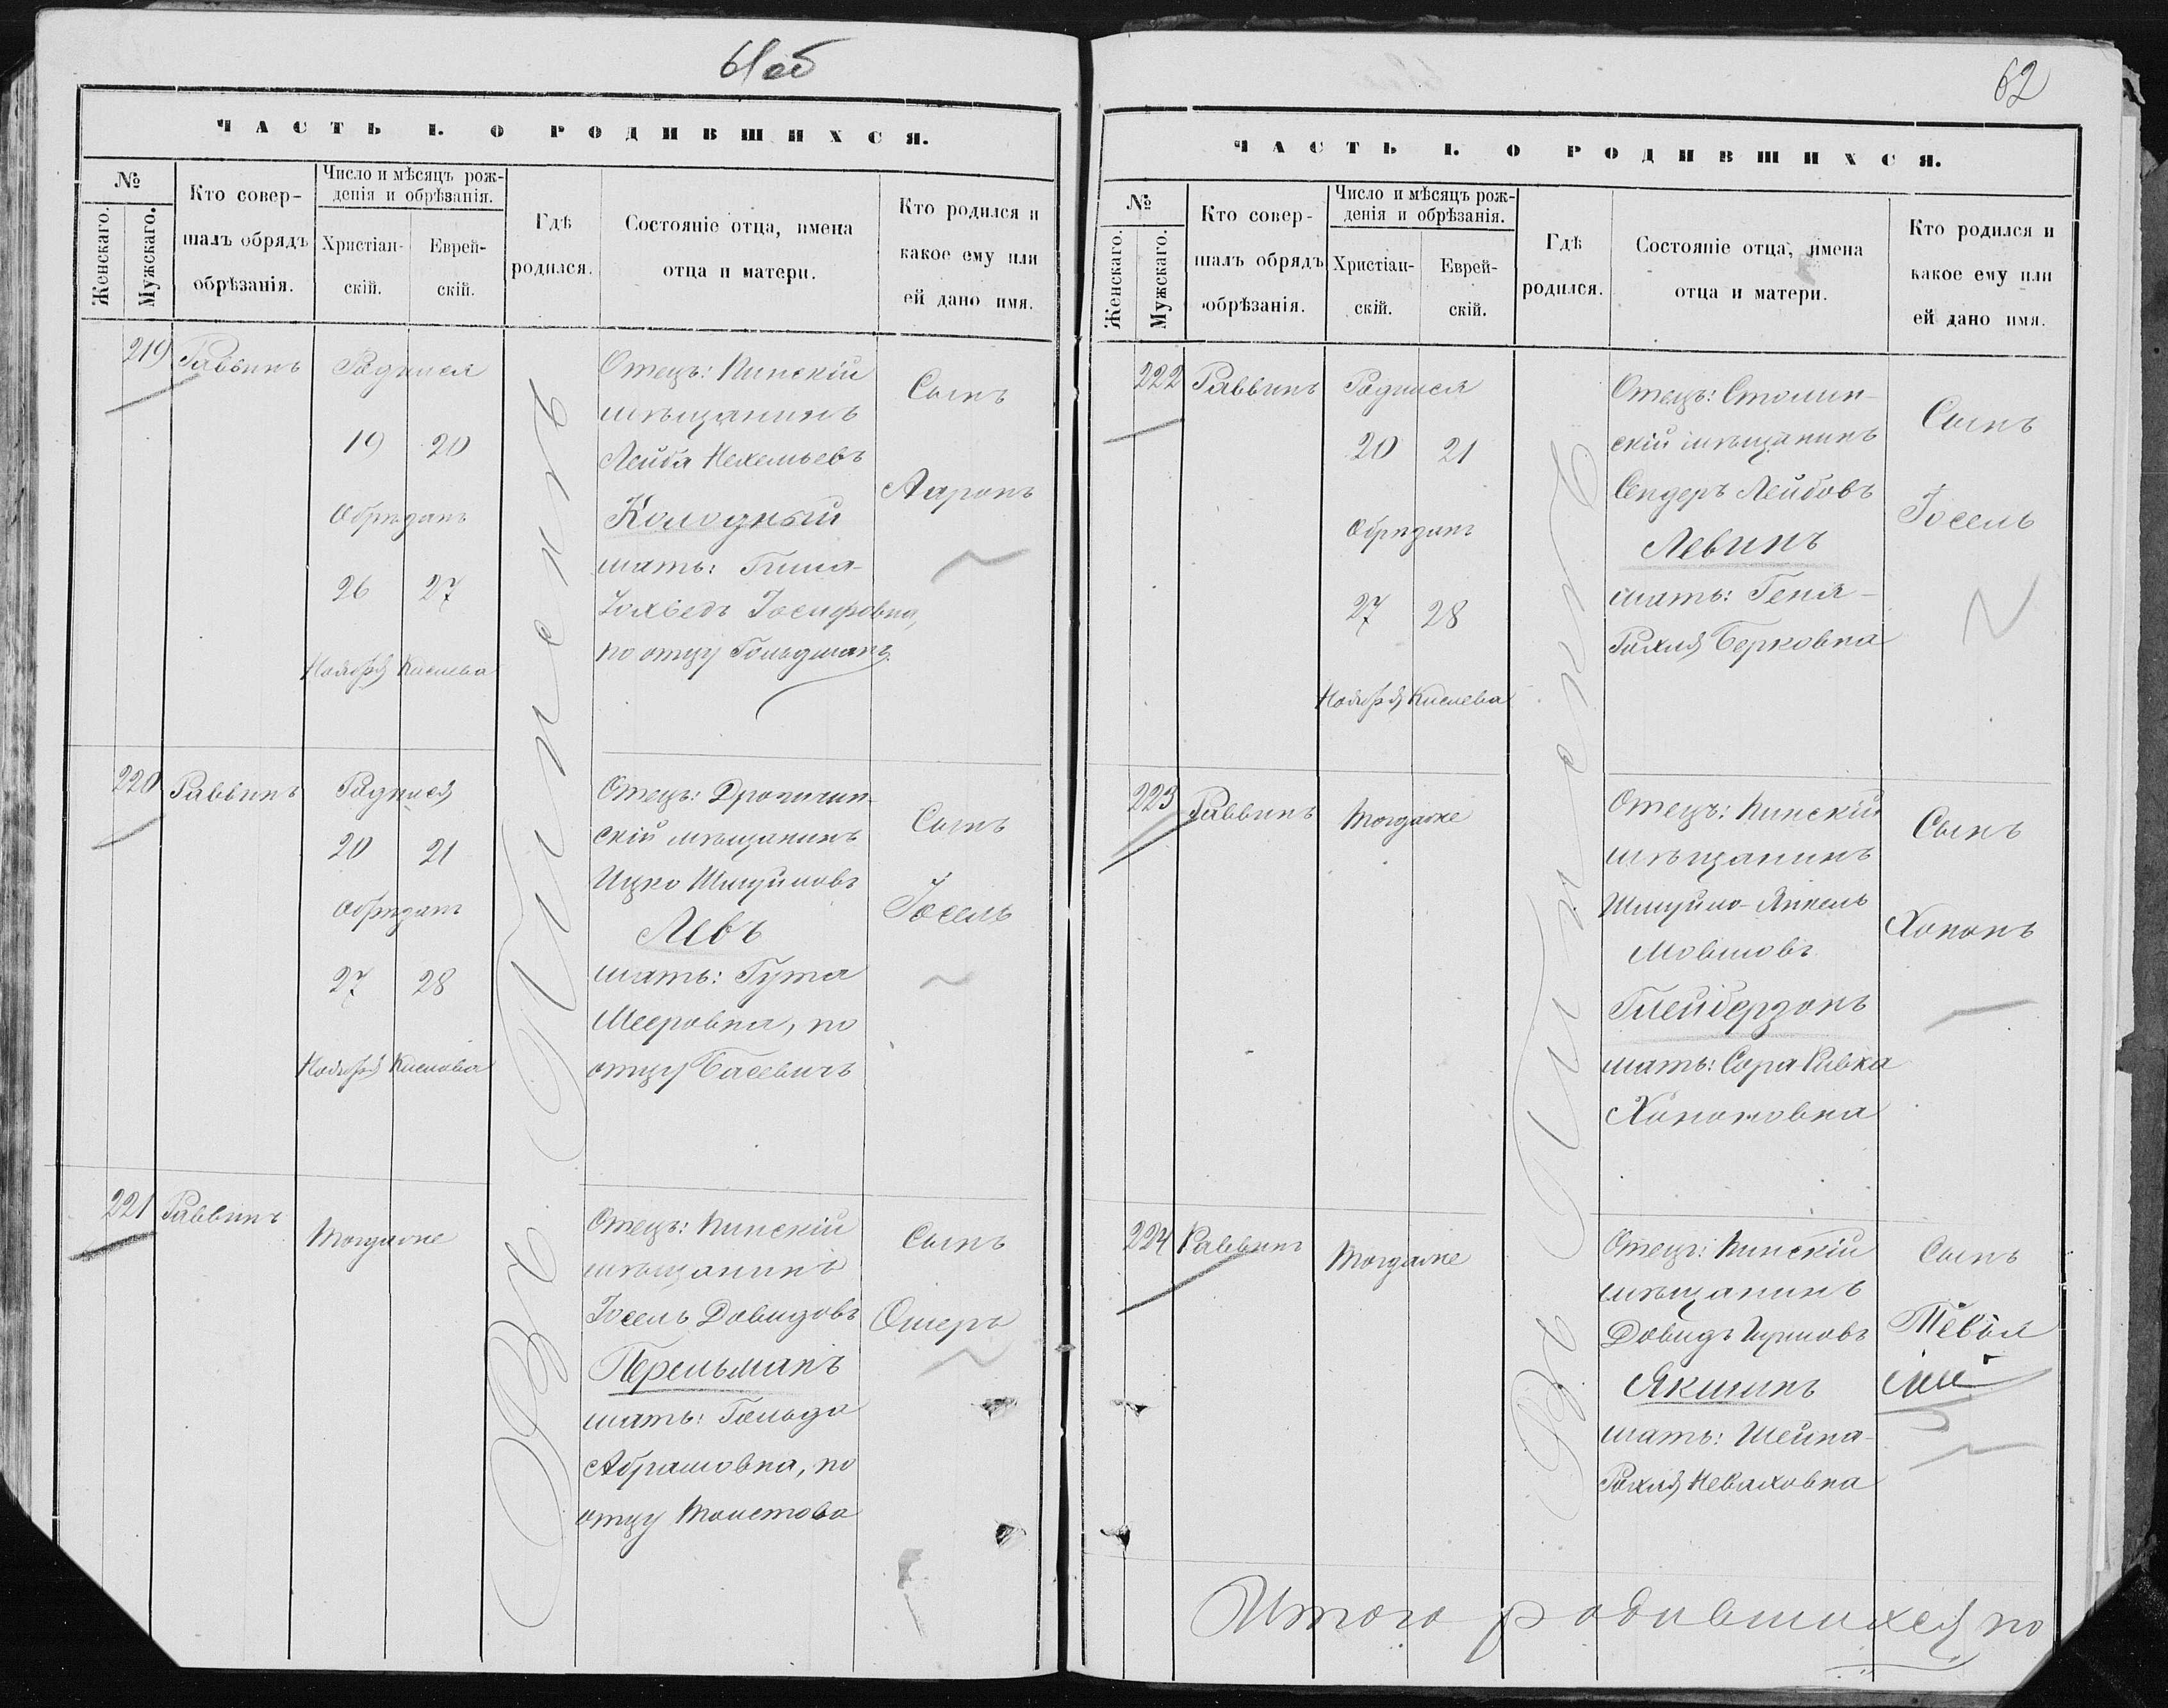 61 об
ЧАСТЬ I. О РОДИВШИХСЯ.
№
Женскаго.
Мужскаго.
Кто совер-
шалъ обрядъ
обрѣзанія.
Число и мѣсяцъ рож-
денія и обрѣзанія.
Христіан-
скій.
Еврей-
скій.
Гдѣ
родился.
Состояніе отца, имена
отца и матери.
Кто родился и
какое ему или
ей дано имя.
219 Раввинъ
Родился
19 20
Обрѣзанъ
26 27
Ноября Кислева
Отецъ: Пинскій
мѣщанинъ
Лейба Нехемьевъ
Колодный
мать:
Іосифовна,
по отцу Гольдманъ
Сынъ
Ааронъ
220 Раввинъ
Родился
20 21
Обрѣзанъ
27 28
Ноября Кислева
Отецъ: Дрогичин-
скій мѣщанинъ
Ицко Шмуйловъ
Левъ
мать: Гута
Мееровна, по
отцу Басевичъ
Сынъ
Іосель
221 Раввинъ
Тогдаже
Отецъ: Пинскій
мѣщанинъ
Іосель Довидовъ
Перельманъ
мать: Гольда
Абрамовна, по
отцу
Сынъ
Ошеръ
Въ Пинскѣ
62
ЧАСТЬ I. О РОДИВШИХСЯ.
№
Женскаго.
Мужскаго.
Кто совер-
шалъ обрядъ
обрѣзанія.
Число и мѣсяцъ рож-
денія и обрѣзанія.
Христіан-
скій.
Еврей-
скій.
Гдѣ
родился.
Состояніе отца, имена
отца и матери.
Кто родился и
какое ему или
ей дано имя.
222 Раввинъ
Родился
20 21
Обрѣзанъ
27 28
Ноября Кислева
Отецъ: Столин-
скій мѣщанинъ
Сендеръ Лейбовъ
Левинъ
мать: Геня-
Рахля Берковна
Сынъ
Іосель
223 Раввинъ
Тогдаже
Отецъ: Пинскій
мѣщанинъ
Шмуйло-Янкель
Мовшовъ
Глейберзонъ
мать: Сора-Ривка
Хононовна
Сынъ
Хононъ
224 Раввинъ
Тогдаже
Отецъ: Пинскій
мѣщанинъ
Довидъ
Якшинъ
мать: Шейна-
Рахля Неваховна
Сынъ
Тевель
Въ Пинскѣ
Итого родившихся по